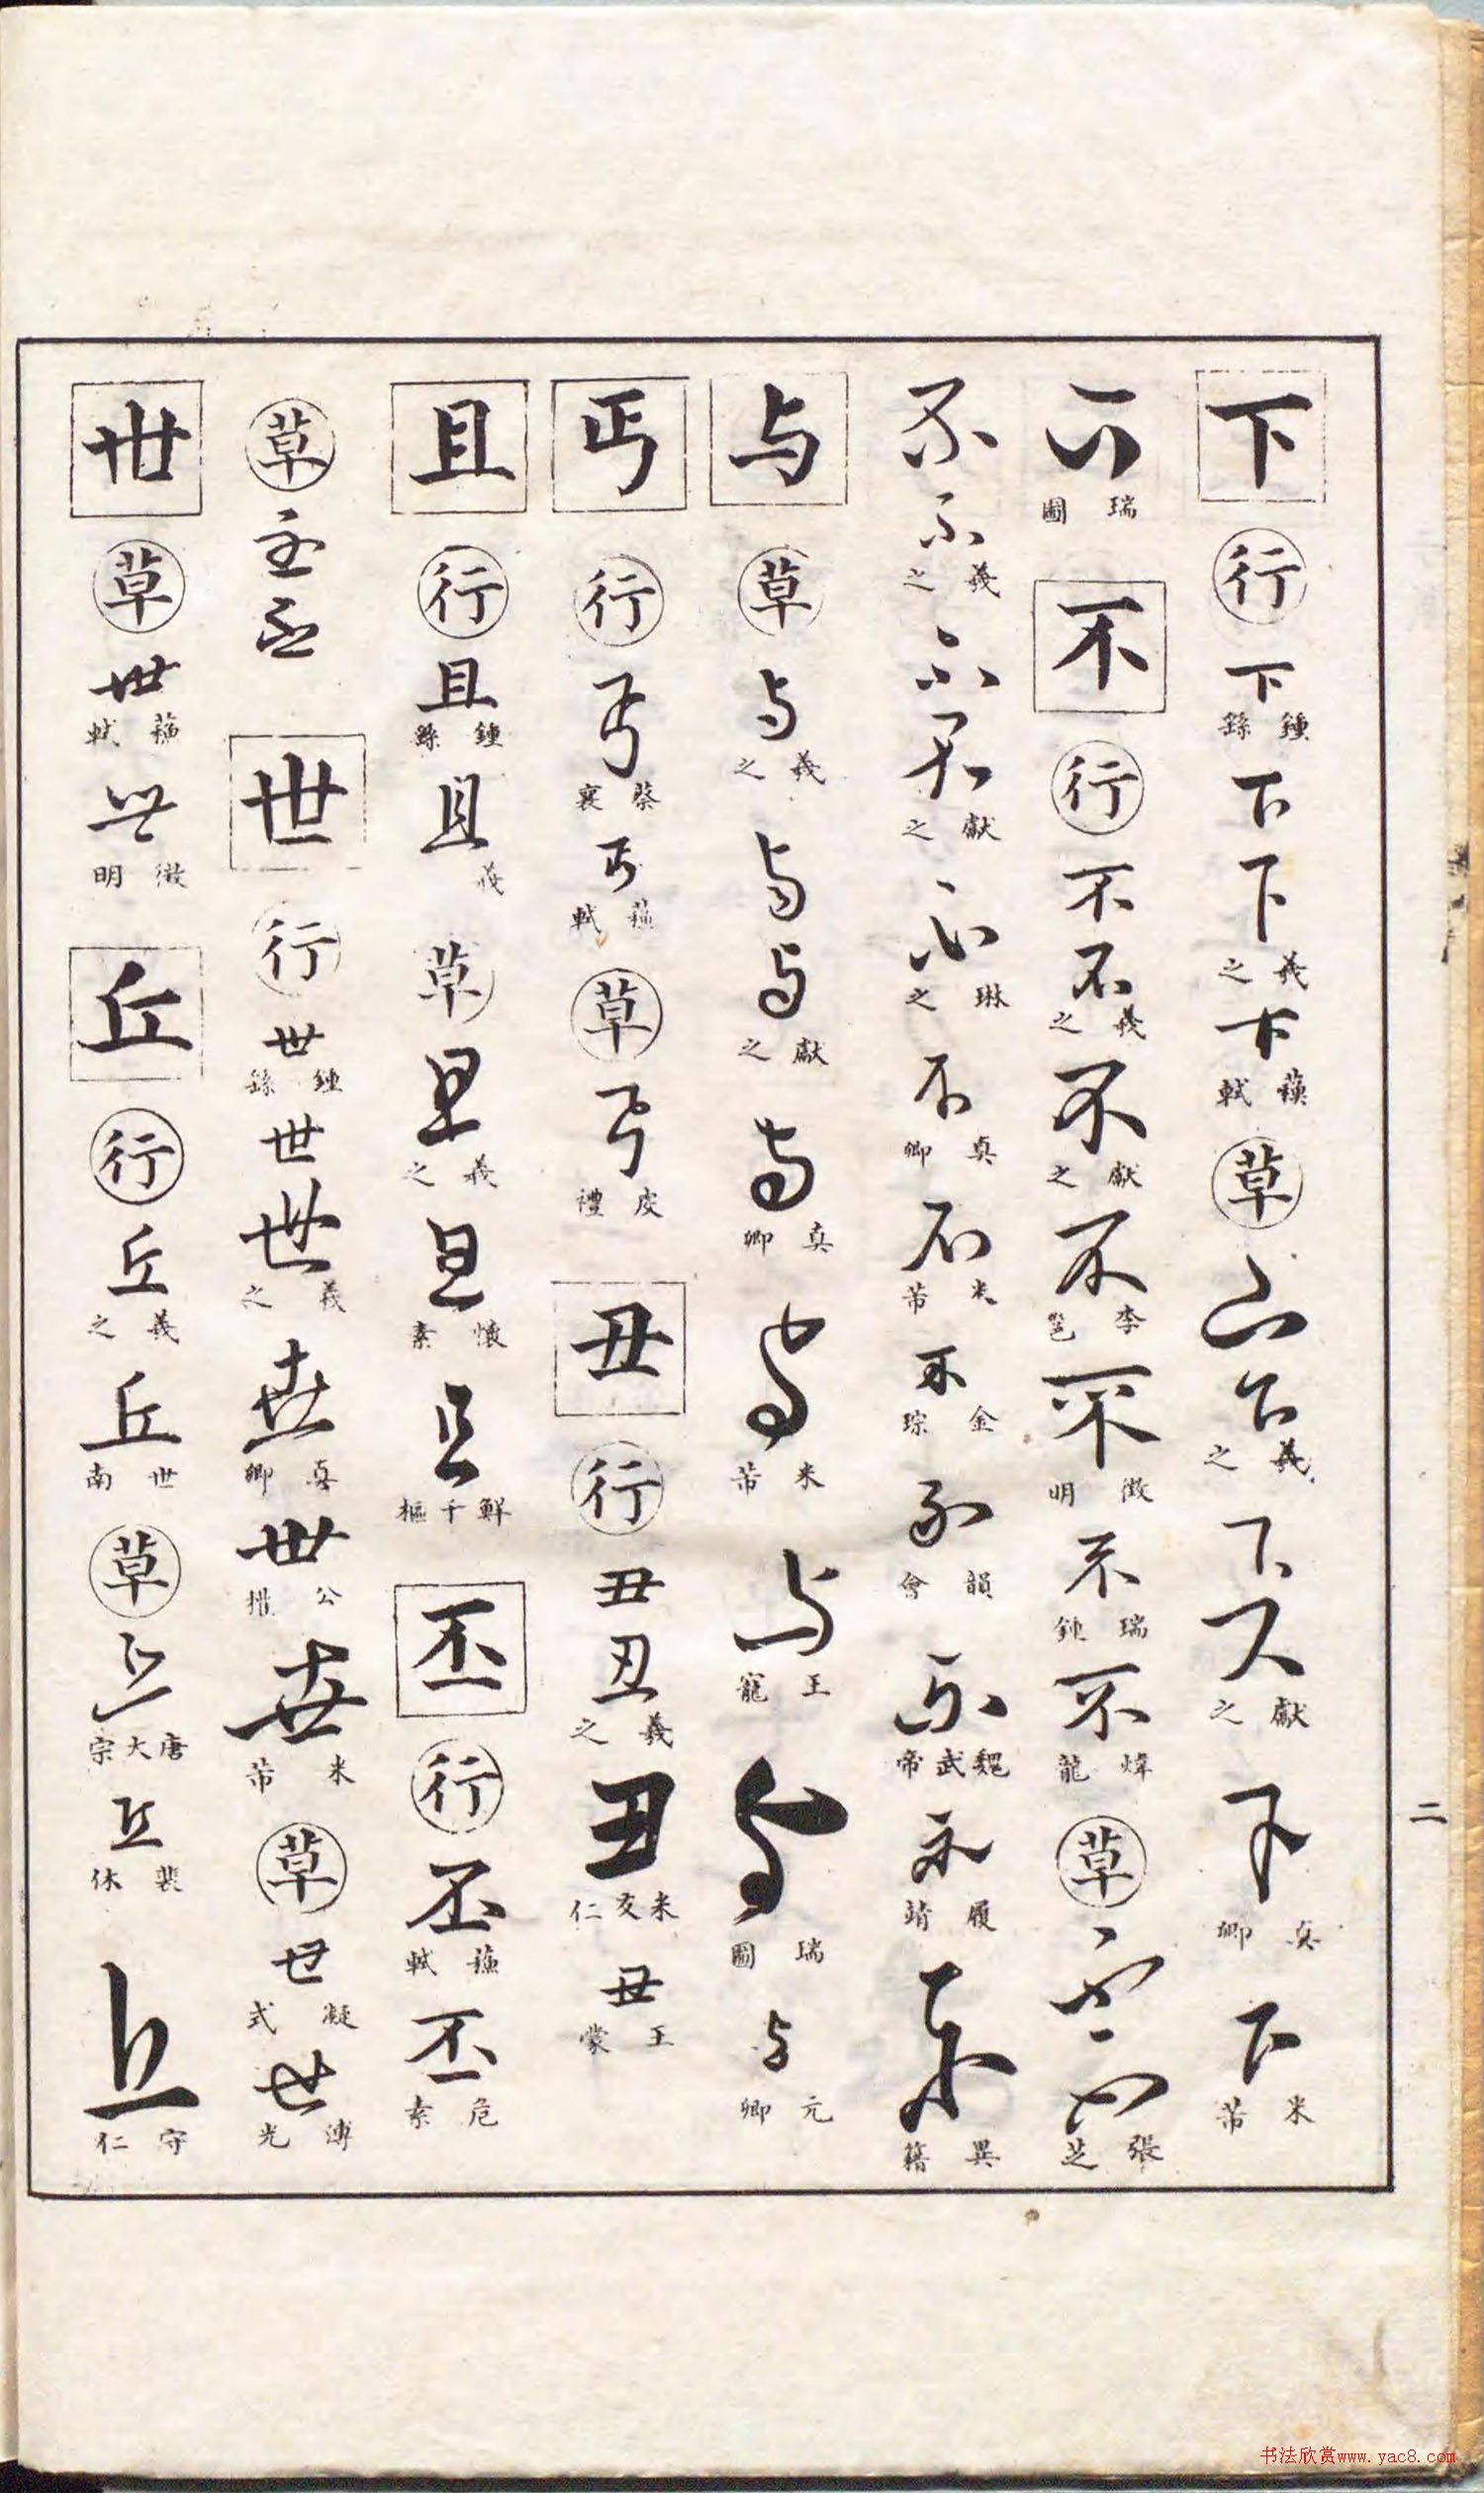 下 行 下 鍾繇 下 下 羲之 下 蘇軾 草 下 下 羲之 下 下 獻之 下 真卿 下 米芾
下 瑞圖 不 行 不 不 羲之 不 獻之 不 李邕 不 徵明 不 瑞鍾 不 煒龍 草 不 不 張芝
不 不 羲之 不 不 獻之 不 琳之 不 真卿 不 米芾 不 金琮 不 韻會 不 魏武帝 不 履靖 不 異籍
与 草 与 羲之 与 与 獻之 与 真卿 与 米芾 与 王寵 与 瑞圖 与 元卿
丐 行 丐 蔡襄 丐 蘇軾 草 丐 皮禮 丑 行 丑 丑 羲之 丑 米友仁 丑 王蒙
且 行 且 鍾繇 且 羲 草 且 羲之 且 懷素 且 鮮于樞 丕 行 丕 蘇軾 丕 危素
草 丕 丕 世 行 世 鍾繇 世 世 羲之 世 真卿 世 公權 世 米芾 草 世 凝式 世 溥光
卋 草 世 蘇軾 世 徵明 丘 行 丘 羲之 丘 世南 草 丘 唐太宗 丘 裴休 丘 守仁
二
书法欣赏www.yac8.com